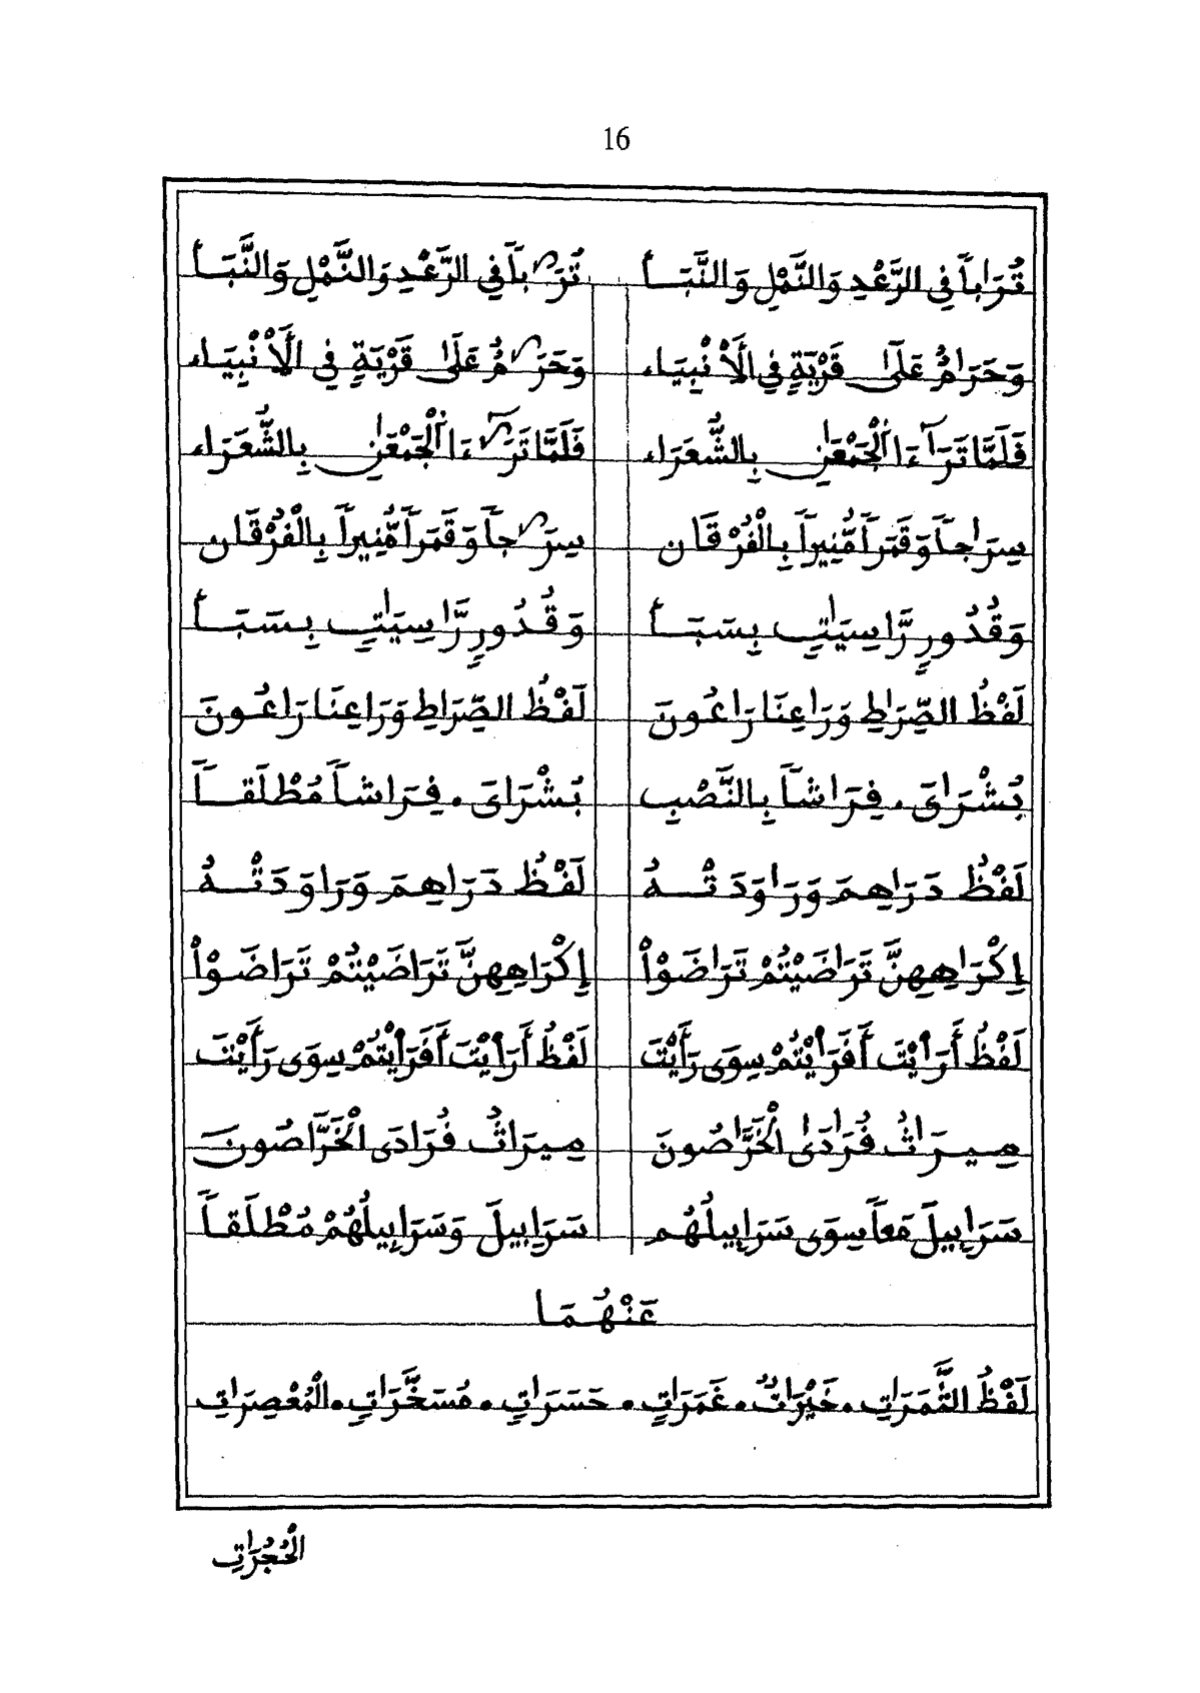 16
تُرَٰباً فِي الرَّعْدِ وَالنَّمْلِ وَالنَّبَأ تُرَٰباً فِي الرَّعْدِ وَالنَّمْلِ وَالنَّبَأ
وَحَرَامٌ عَلَىٰ قَرْيَةٍ فِي الَأنْبِيَاء وَحَرَٰمٌ عَلَىٰ قَرْيَةٍ فِي الَأنْبِيَاء
فَلَمَّا تَرَآءَا اَلْجَمْعَٰنِ بِالشُّعَرَاء فَلَمَّا تَرَٰٓءَا اَلْجَمْعَٰنِ بِالشُّعَرَاء
سِرَٰجاً وَقَمَراً مُّنِيراً بِالْفُرْقَان سِرَٰجاً وَقَمَراً مُّنِيراً بِالْفُرْقَان
وَقُدُورٍ رَّاسِيَٰتٍ بِسَبَأ وَقُدُورٍ رَّاسِيَٰتٍ بِسَبَأ
لَفْظُ الصِّرَٰطِ وَرَٰعِنَا رَٰعُونَ لَفْظُ الصِّرَاطِ وَرَاعِنَا رَاعُونَ
بُشْرَاىَ . فِرَٰشاً بِالنَّصْبِ بُشْرَاىَ . فِرَاشاً مُطْلَقاً
لَفْظُ دَرَٰهِمَ وَرَٰوَدَتْهُ لَفْظُ دَرَاهِمَ وَرَاوَدَتْهُ
إِكْرَٰهِهِنَّ تَرَٰضَيْتُمْ تَرَٰضَوْاْ إِكْرَاهِهِنَّ تَرَاضَيْتُمْ تَرَاضَوْاْ
لَفْظُ أَرَٰيْتَ أَفَرَٰيْتُمْ سِوَى رَأَيْتَ لَفْظُ أَرَايْتَ أَفَرَايْتُمْ سِوَى رَأَيْتَ
مِيرَٰثُ فُرَٰدَىٰ اَلْخَرَّٰصُونَ مِيرَاثُ فُرَادَى اَلْخَرَّاصُونَ
سَرَٰبِيلَ مَعاً سِوَى سَرَابِيلُهُم سَرَابِيلَ وَسَرَابِيلُهُمْ مُطْلَقاً
عَنْهُمَا
لَفْظُ الثَّمَرَٰتِ . خَيْرَٰتٌ . غَمَرَٰتِ . حَسَرَٰتٍ . مُسَخَّرَٰتٍ . الْمُعْصِرَٰتِ
الْحُجُرَٰتِ